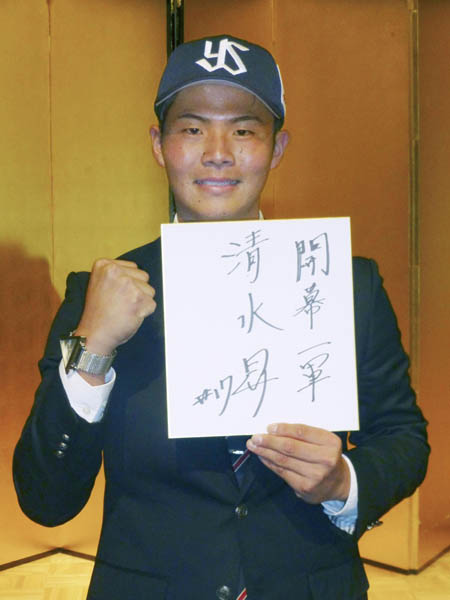 YS
開幕一軍
清水昇
#17